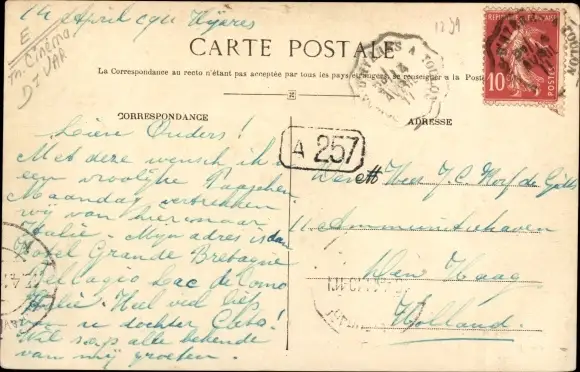 14 April 1911 Hyères
E
m. Cinéma
DT VAR
12 39
CARTE POSTALE
La Correspondance au recto n'étant pas acceptée par tous les pays étrangers, se renseigner à la Poste
CORRESPONDANCE
ADRESSE
RÉPUBLIQUE FRANÇAISE
10
TOULON
A 257
Lieve Ouders!
Met deze wensch ik u
een vroolijke Paaschen.
Maandag vertrekken
wij van hier naar
Italië - Mijn adres is dan
Hotel Grande Bretagne
Bellagio Lac de Como
Italië. Heel veel liefs
van u dochter
Wil s.v.p. alle bekende
van mij groeten.
Den Heer J C
11 Ammunitiehaven
Den Haag
Holland.